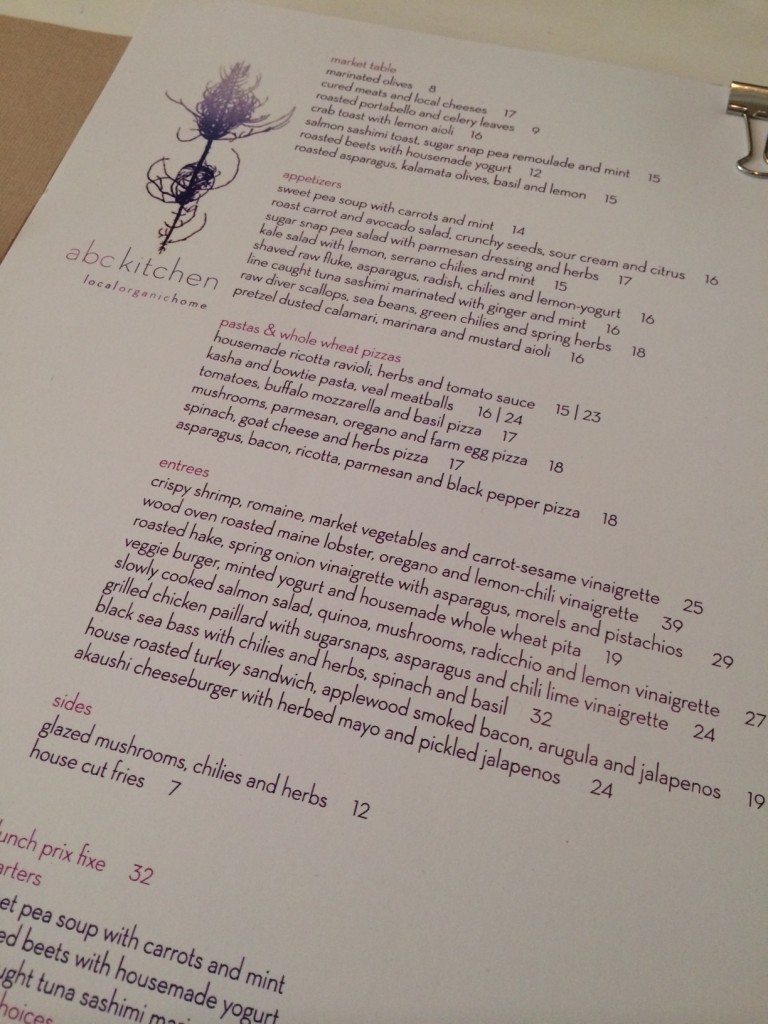 abckitchen
localorganichome
market table
marinated olives 8
cured meats and local cheeses 17
roasted portabello and celery leaves 9
crab toast with lemon aioli 16
salmon sashimi toast, sugar snap pea remoulade and mint 15
roasted beets with housemade yogurt 12
roasted asparagus, kalamata olives, basil and lemon 15
appetizers
sweet pea soup with carrots and mint 14
roast carrot and avocado salad, crunchy seeds, sour cream and citrus 16
sugar snap pea salad with parmesan dressing and herbs 17
kale salad with lemon, serrano chilies and mint 15
shaved raw fluke, asparagus, radish, chilies and lemon-yogurt 16
line caught tuna sashimi marinated with ginger and mint 16
raw diver scallops, sea beans, green chilies and spring herbs 18
pretzel dusted calamari, marinara and mustard aioli 16
pastas & whole wheat pizzas
housemade ricotta ravioli, herbs and tomato sauce 15 | 23
kasha and bowtie pasta, veal meatballs 16 | 24
tomatoes, buffalo mozzarella and basil pizza 17
mushrooms, parmesan, oregano and farm egg pizza 18
spinach, goat cheese and herbs pizza 17
asparagus, bacon, ricotta, parmesan and black pepper pizza 18
entrees
crispy shrimp, romaine, market vegetables and carrot-sesame vinaigrette 25
wood oven roasted maine lobster, oregano and lemon-chili vinaigrette 39
roasted hake, spring onion vinaigrette with asparagus, morels and pistachios 29
veggie burger, minted yogurt and housemade whole wheat pita 19
slowly cooked salmon salad, quinoa, mushrooms, radicchio and lemon vinaigrette 27
grilled chicken paillard with sugarsnaps, asparagus and chili lime vinaigrette 24
black sea bass with chilies and herbs, spinach and basil 32
house roasted turkey sandwich, applewood smoked bacon, arugula and jalapenos 19
akaushi cheeseburger with herbed mayo and pickled jalapenos 24
sides
glazed mushrooms, chilies and herbs 12
house cut fries 7
unch prix fixe 32
arters
et pea soup with carrots and mint
ed beets with housemade yogurt
ught tuna sashimi mari
hoices